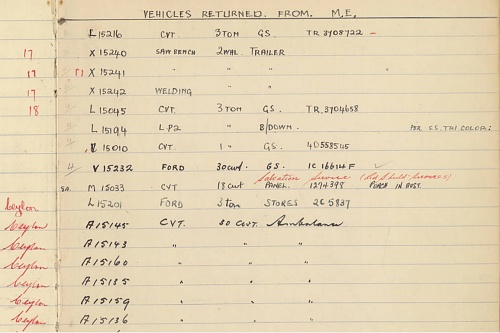 VEHICLES RETURNED. FROM. M.E.
L 15216 CVT. 3 TON GS. TR 3708722 -
17 X 15240 SAW BENCH 2 WHL TRAILER
17 X 15241 " " "
17 X 15242 WELDING " "
18 L 15045 CVT. 3 TON GS. TR 3704658
L 15194 L.P.2 " B/DOWN. PER S.S. TRICOLOR.
V 15010 CVT. 1 " GS. 4D558545
V 15232 FORD 30 cwt. GS. 1C16614F ✓
Salvation Service
M 15033 CVT 18 cwt PANEL. 1274398
Ceylon L 15201 FORD 3 Ton STORES 2G 5837
Ceylon A 15145 CVT. 30 CWT. Ambulance
Ceylon A 15143 " " "
Ceylon A 15160 " " "
Ceylon A 15135 " " "
Ceylon A 15159 " " "
Ceylon A 15136 " " "